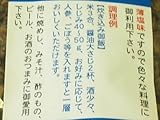 薄塩味ですので色々な料理に
御利用下さい。
調理例
【炊き込み御飯】
米3合、醤油大さじ2杯、酒少々、
しじみ40〜50g、お好みに応じて、
人参、ごぼう等を入れますと一層
おいしくいただけます。
他に焼めし、みそ汁、酢のもの、
に、お酒のおつまみに御愛用
下さい。